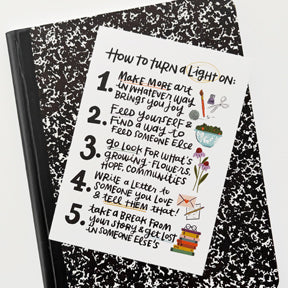 How to turn a Light on:
1. Make more art
in whatever way
brings you joy
2. Feed yourself &
find a way to
feed someone else
3. go look for what's
growing - flowers,
hope, communities
4. Write a letter to
someone you love
& tell them that!
5. take a break from
your story & get lost
in someone else's